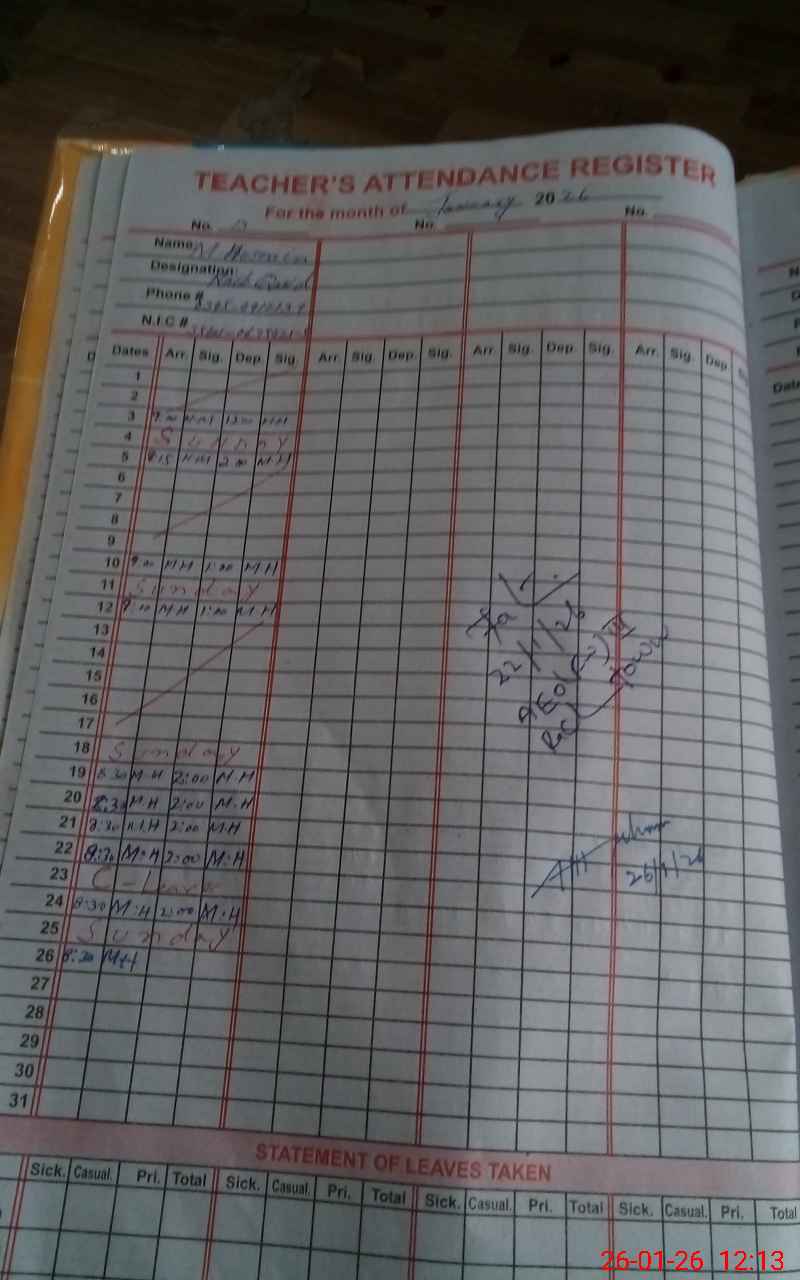 TEACHER'S ATTENDANCE REGISTER
For the month of January 2026
No. No. No.
Name
Designation:
Phone #
N.I.C #
Dates Arr. Sig. Dep. Sig. Arr. Sig. Dep. Sig. Arr. Sig. Dep. Sig. Arr. Sig. Dep.
1
2
3 9:00 M.H 12:00 M.H
4 Sunday
5 8:15 M.H 2:00 M.H
6
7
8
9
10 9:00 M.H 1:00 M.H
11 Sunday
12 M.H 1:00 M.H
13
14
15
16
17
18 Sunday
19 8:30 M.H 2:00 M.H
20 8:30 M.H 2:00 M.H
21 8:30 M.H 2:00 M.H
22 8:30 M.H 2:00 M.H
23 C-Leave
24 8:30 M.H 2:00 M.H
25 Sunday
26 8:30 M.H
27
28
29
30
31
22/1/26
AEO
Town
26/1/26
STATEMENT OF LEAVES TAKEN
Sick. Casual. Pri. Total Sick. Casual. Pri. Total Sick. Casual. Pri. Total Sick. Casual. Pri. Total
26-01-26 12:13